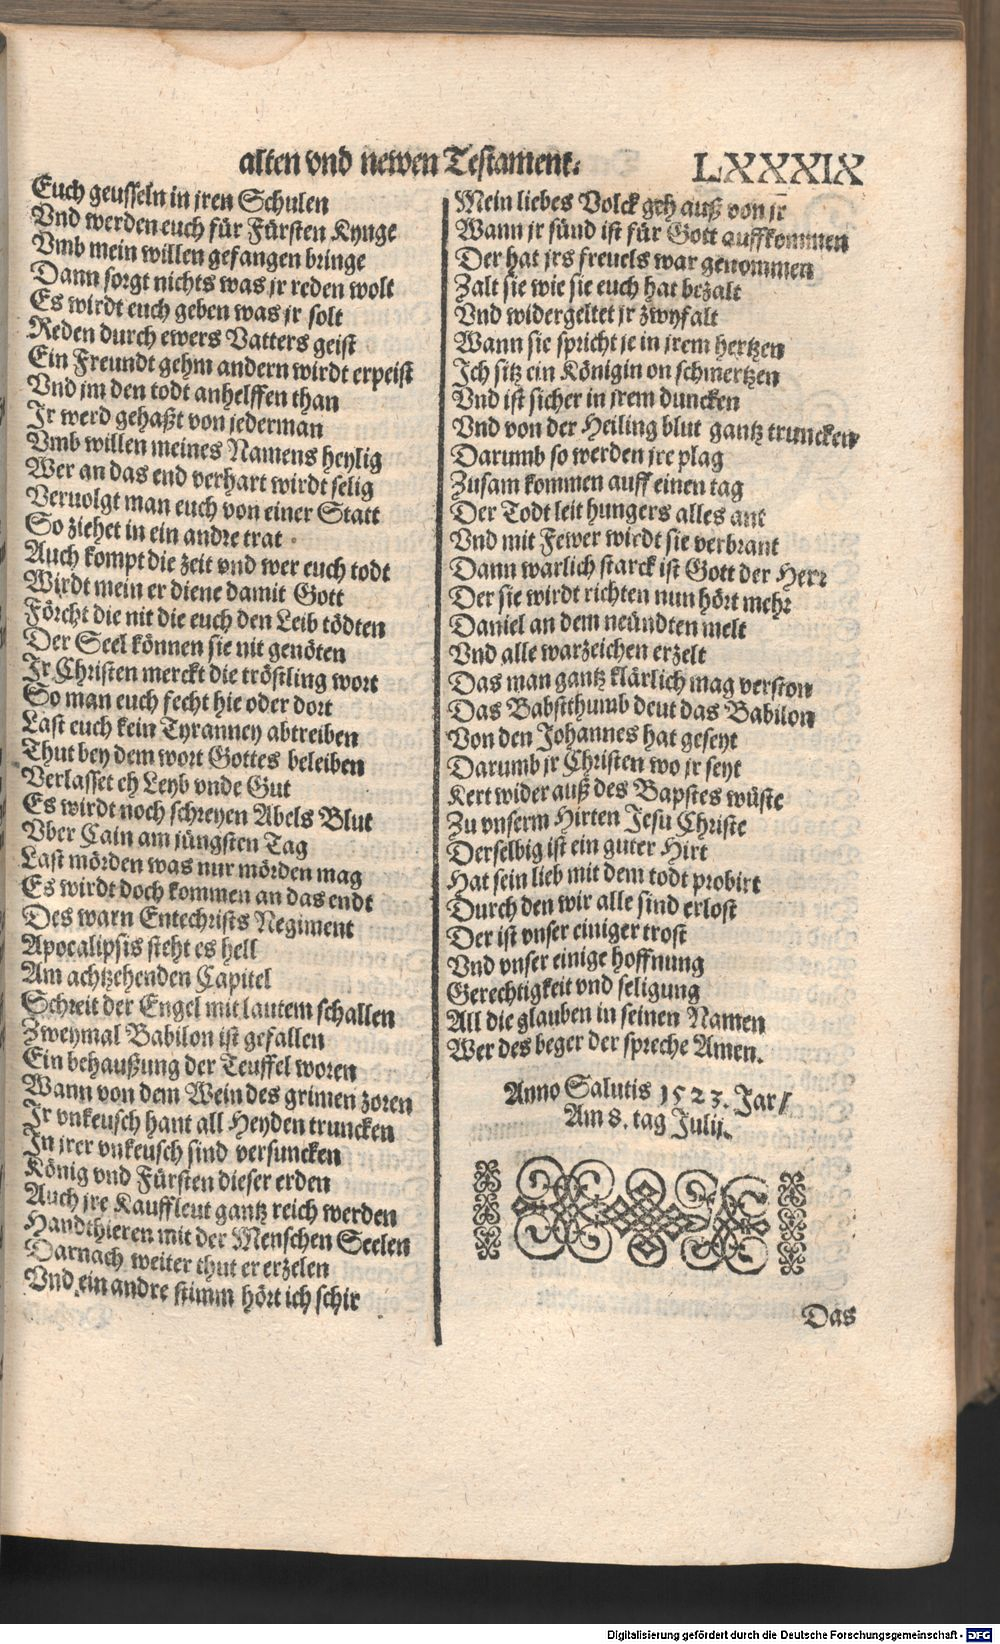 alten vnd newen Testament.
LXXXIX
Euch geusseln in jren Schulen
Vnd werden euch für Fürsten Kynge
Vmb mein willen gefangen bringe
Dann sorgt nichts was jr reden wolt
Es wirdt euch geben was jr solt
Reden durch ewers Vatters geist
Ein Freundt gehm andern wirdt erpeist
Vnd jm den todt anhelffen than
Jr werd gehaßt von jederman
Vmb willen meines Namens heylig
Wer an das end verhart wirdt selig
Veruolgt man euch von einer Statt
So ziehet in ein andre trat
Auch kompt die zeit vnd wer euch todt
Wirdt mein er diene damit Gott
Förcht die nit die euch den Leib tödten
Der Seel können sie nit genöten
Jr Christen merckt die tröstling wort
So man euch fecht hie oder dort
Last euch kein Tyranney abtreiben
Thut bey dem wort Gottes beleiben
Verlasset eh Leyb vnde Gut
Es wirdt noch schreyen Abels Blut
Vber Cain am jüngsten Tag
Last mörden was nur mörden mag
Es wirdt doch kommen an das endt
Des warn Entechrists Regiment
Apocalipsis steht es hell
Am achtzehenden Capitel
Schreit der Engel mit lautem schallen
Zweymal Babilon ist gefallen
Ein behaußung der Teuffel woren
Wann von dem Wein des grimen zoren
Jr vnkeusch hant all Heyden truncken
Jn jrer vnkeusch sind versuncken
König vnd Fürsten dieser erden
Auch jre Kauffleut gantz reich werden
Handthieren mit der Menschen Seelen
Darnach weiter thut er erzelen
Vnd ein andre stimm hört ich schir
Mein liebes Volck geh auß von jr
Wann jr sünd ist für Gott auffkommen
Der hat jrs freuels war genommen
Zalt sie wie sie euch hat bezalt
Vnd widergeltet jr zwyfalt
Wann sie spricht je in jrem hertzen
Jch sitz ein Königin on schmertzen
Vnd ist sicher in jrem duncken
Vnd von der Heiling blut gantz truncken
Darumb so werden jre plag
Zusam kommen auff einen tag
Der Todt leit hungers alles ant
Vnd mit Fewer wirdt sie verbrant
Dann warlich starck ist Gott der Herr
Der sie wirdt richten nun hört mehr
Daniel an dem neündten melt
Vnd alle warzeichen erzelt
Das man gantz klärlich mag verston
Das Babstthumb deut das Babilon
Von den Johannes hat geseyt
Darumb jr Christen wo jr seyt
Kert wider auß des Bapstes wüste
Zu vnserm Hirten Jesu Christe
Derselbig ist ein guter Hirt
Hat sein lieb mit dem todt probirt
Durch den wir alle sind erlost
Der ist vnser einiger trost
Vnd vnser einige hoffnung
Gerechtigkeit vnd seligung
All die glauben in seinen Namen
Wer des beger der spreche Amen.
Anno Salutis 1523. Jar/
Am 8. tag Julij.
Das
Digitalisierung gefördert durch die Deutsche Forschungsgemeinschaft - DFG